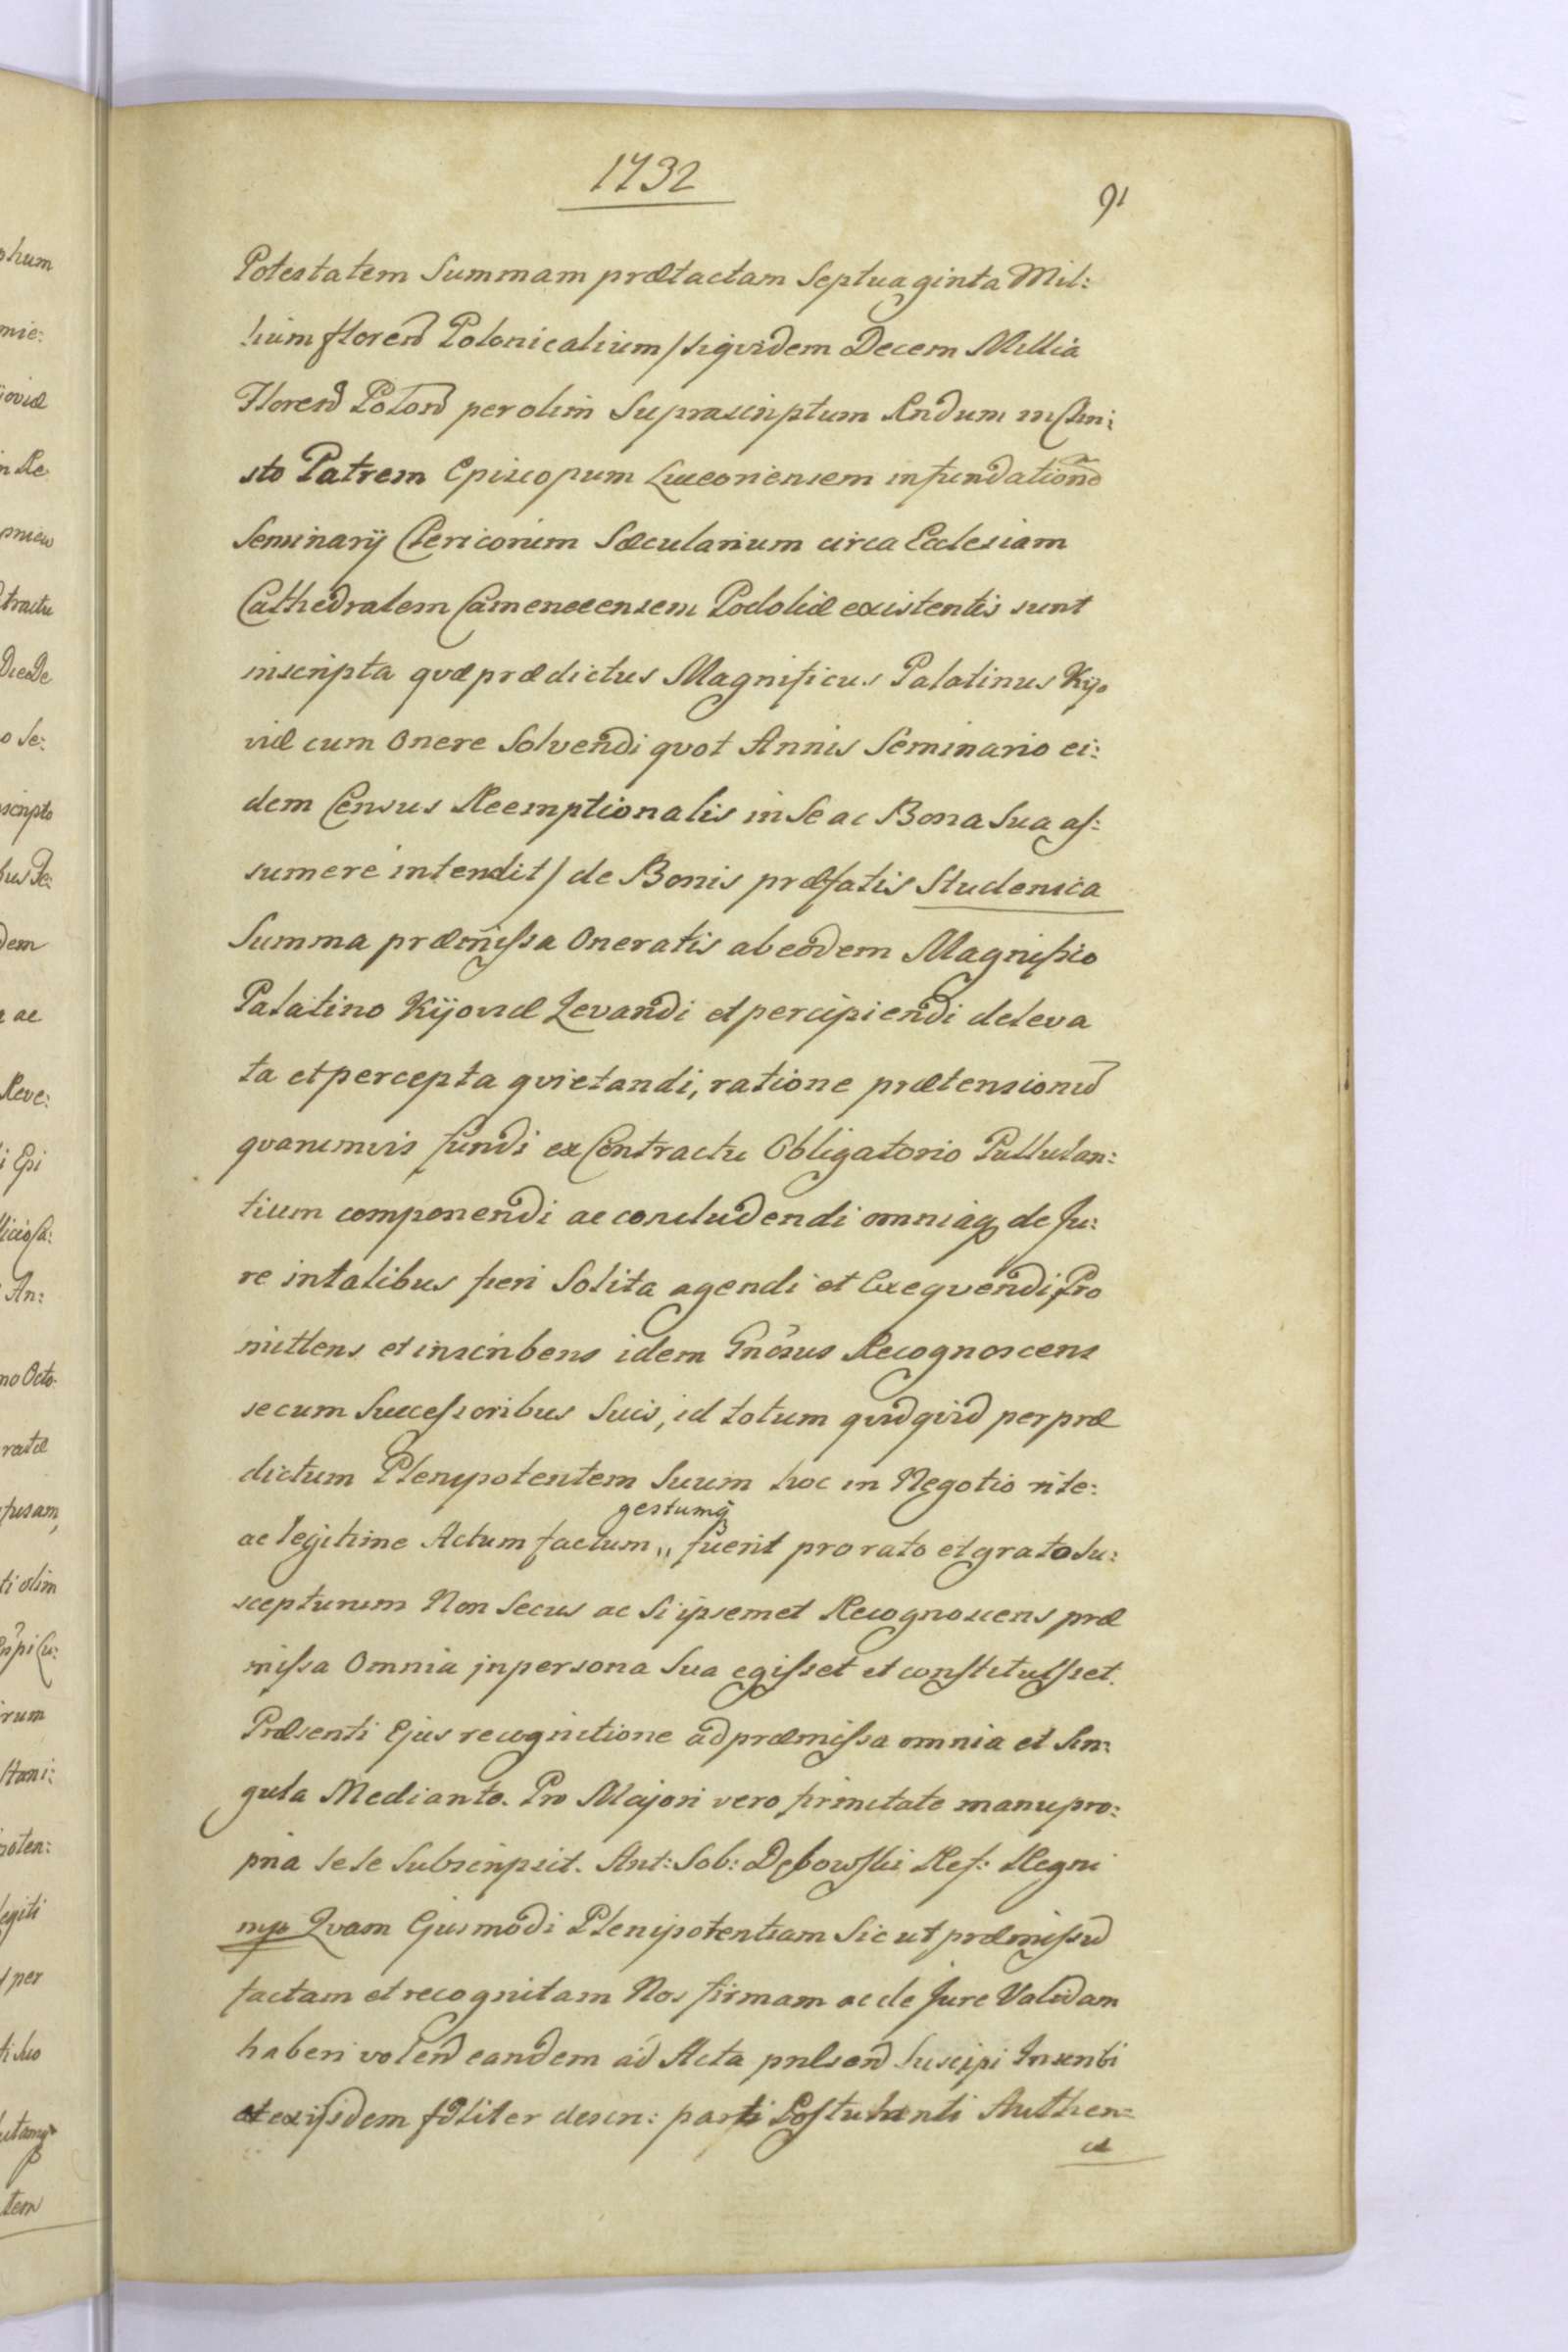 1732
91
Potestatem Summam prætactam Septuaginta Mil:
lium floren Polonicalium/siqvidem Decem Millia
Floren Polon per olim Suprascriptum Rndum in Chri:
sto Patrem Episcopum Luceoriensem in fundatione
Seminarij Clericorum Sæcularium circa Ecclesiam
Cathedralem Camenecensem Podoliæ existentis sunt
inscripta qvæ prædictus Magnificus Palatinus Kijo
viæ cum Onere Solvendi qvot Annis Seminario ei:
dem Census Reemptionalis in Se ac Bona Sua as:
sumere intendit/ de Bonis præfatis Studenica
Summa præmissa Oneratis ab eodem Magnifico
Palatino Kijoviæ Levandi et percipiendi de leva
ta et percepta qvietandi, ratione prætensionu
qvarumvis fundi ex Contractu Obligatorio Pullulan:
tium componendi ac concludendi omniaq de Ju:
re in talibus fieri Solita agendi et Exeqvendi, Pro
mittens et inscribens idem Gnosus Recognoscens
se cum Successoribus Suis, id totum qvidqvid per præ
dictum Plenipotentem Suum hoc in Negotio rite:
gestumq
ac legitime Actum factum,, fuerit pro rato et grato Su:
scepturum Non Secus ac Si ipsemet Recognoscens præ
missa Omnia in persona Sua egisset et constituisset.
Præsenti Ejus recognitione ad præmissa omnia et Sin:
gula Mediante. Pro Majori vero firmitate manu pro:
pria Sese Subscripsit. Ant: Seb: Dębowski Ref: Regni
mp Qvam Ejusmodi Plenipotentiam Sic ut præmissu
factam et recognitam Nos firmam ac de Jure Validam
haberi volen eandem ad Acta pnlsen Suscipi Inscribi
et ex ijsdem fdliter descri: parti Postulanti Authen: